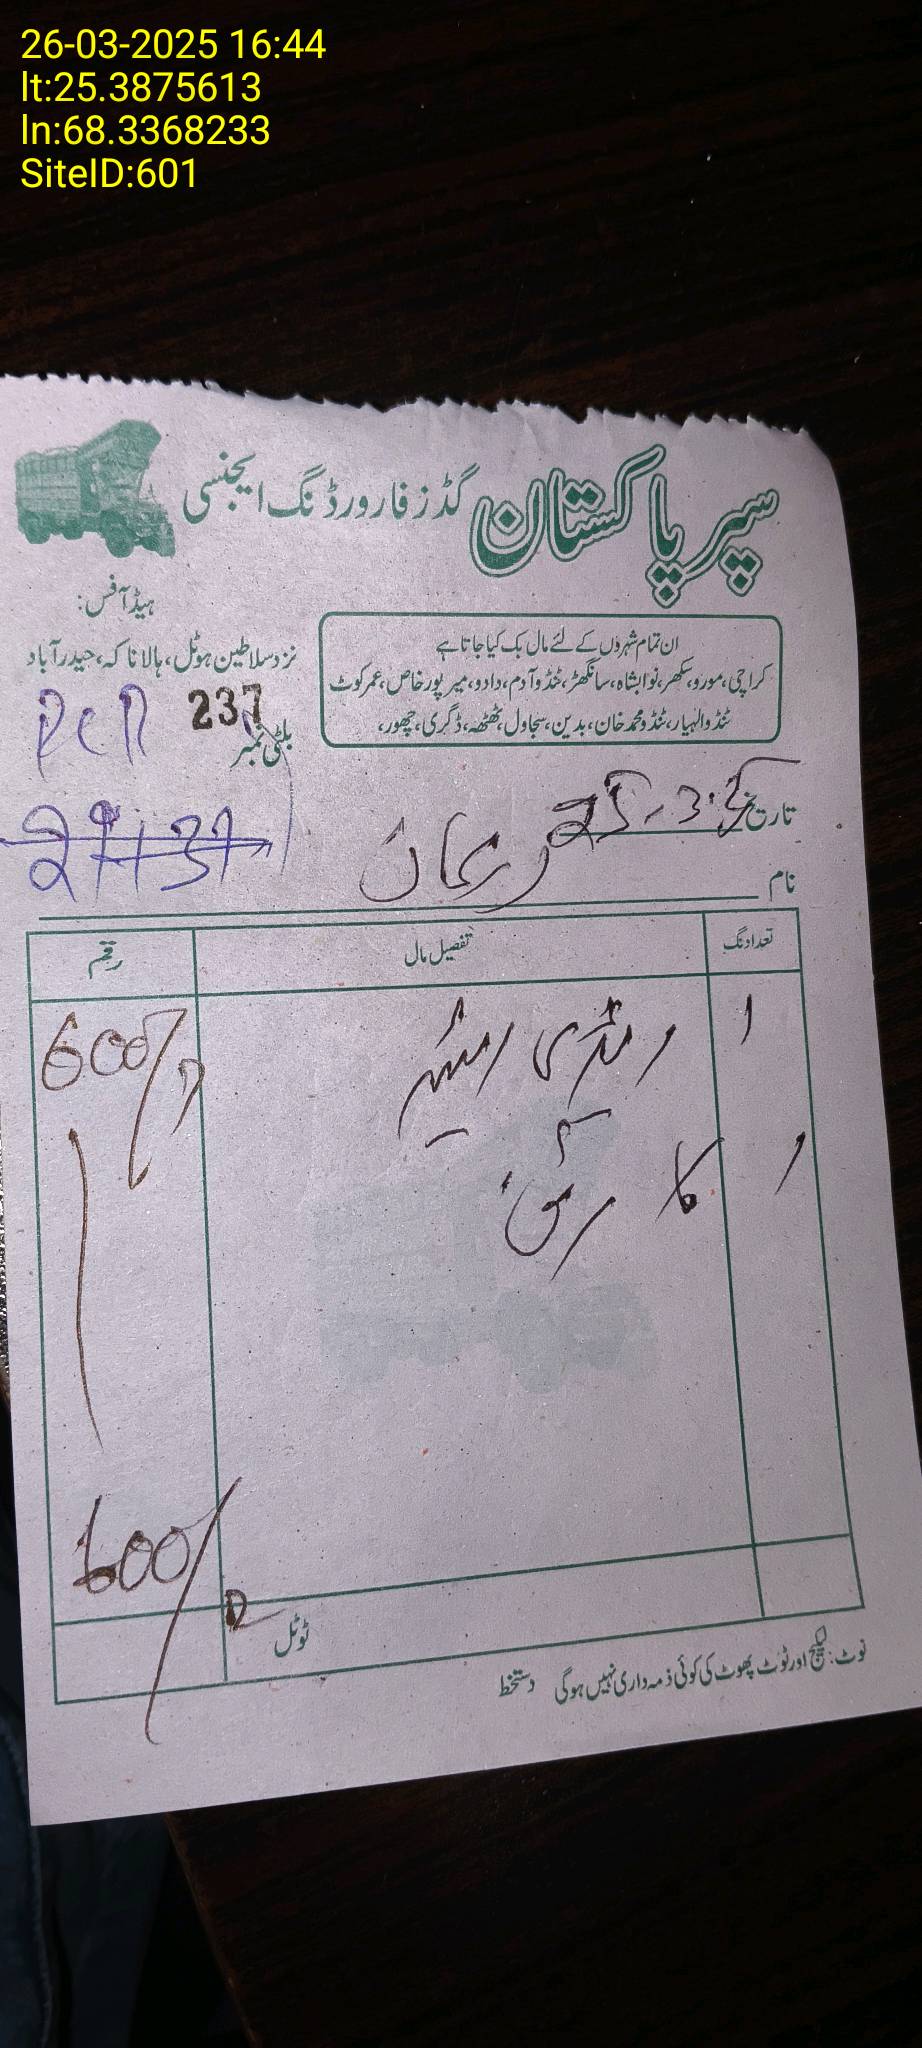 26-03-2025 16:44
lt:25.3875613
ln:68.3368233
SiteID:601
سپر پاکستان گڈز فارورڈنگ ایجنسی
ہیڈ آفس:
نزد سلاطین ہوٹل، ہالا ناکہ، حیدرآباد
ان تمام شہروں کے لئے مال بک کیا جاتا ہے
کراچی، مورو، سکھر، نوابشاہ، سانگھڑ، ٹنڈو آدم، دادو، میرپور خاص، عمر کوٹ
ٹنڈو الہیار، ٹنڈو محمد خان، بدین، سجاول، ٹھٹھہ، ڈگری، چھور،
بلٹی نمبر 237
تاریخ 25-3-25
نام
تعداد نگ تفصیل مال رقم
1 600/
1 کارٹن
600/
ٹوٹل
نوٹ: لیکیج اور ٹوٹ پھوٹ کی کوئی ذمہ داری نہیں ہوگی دستخط